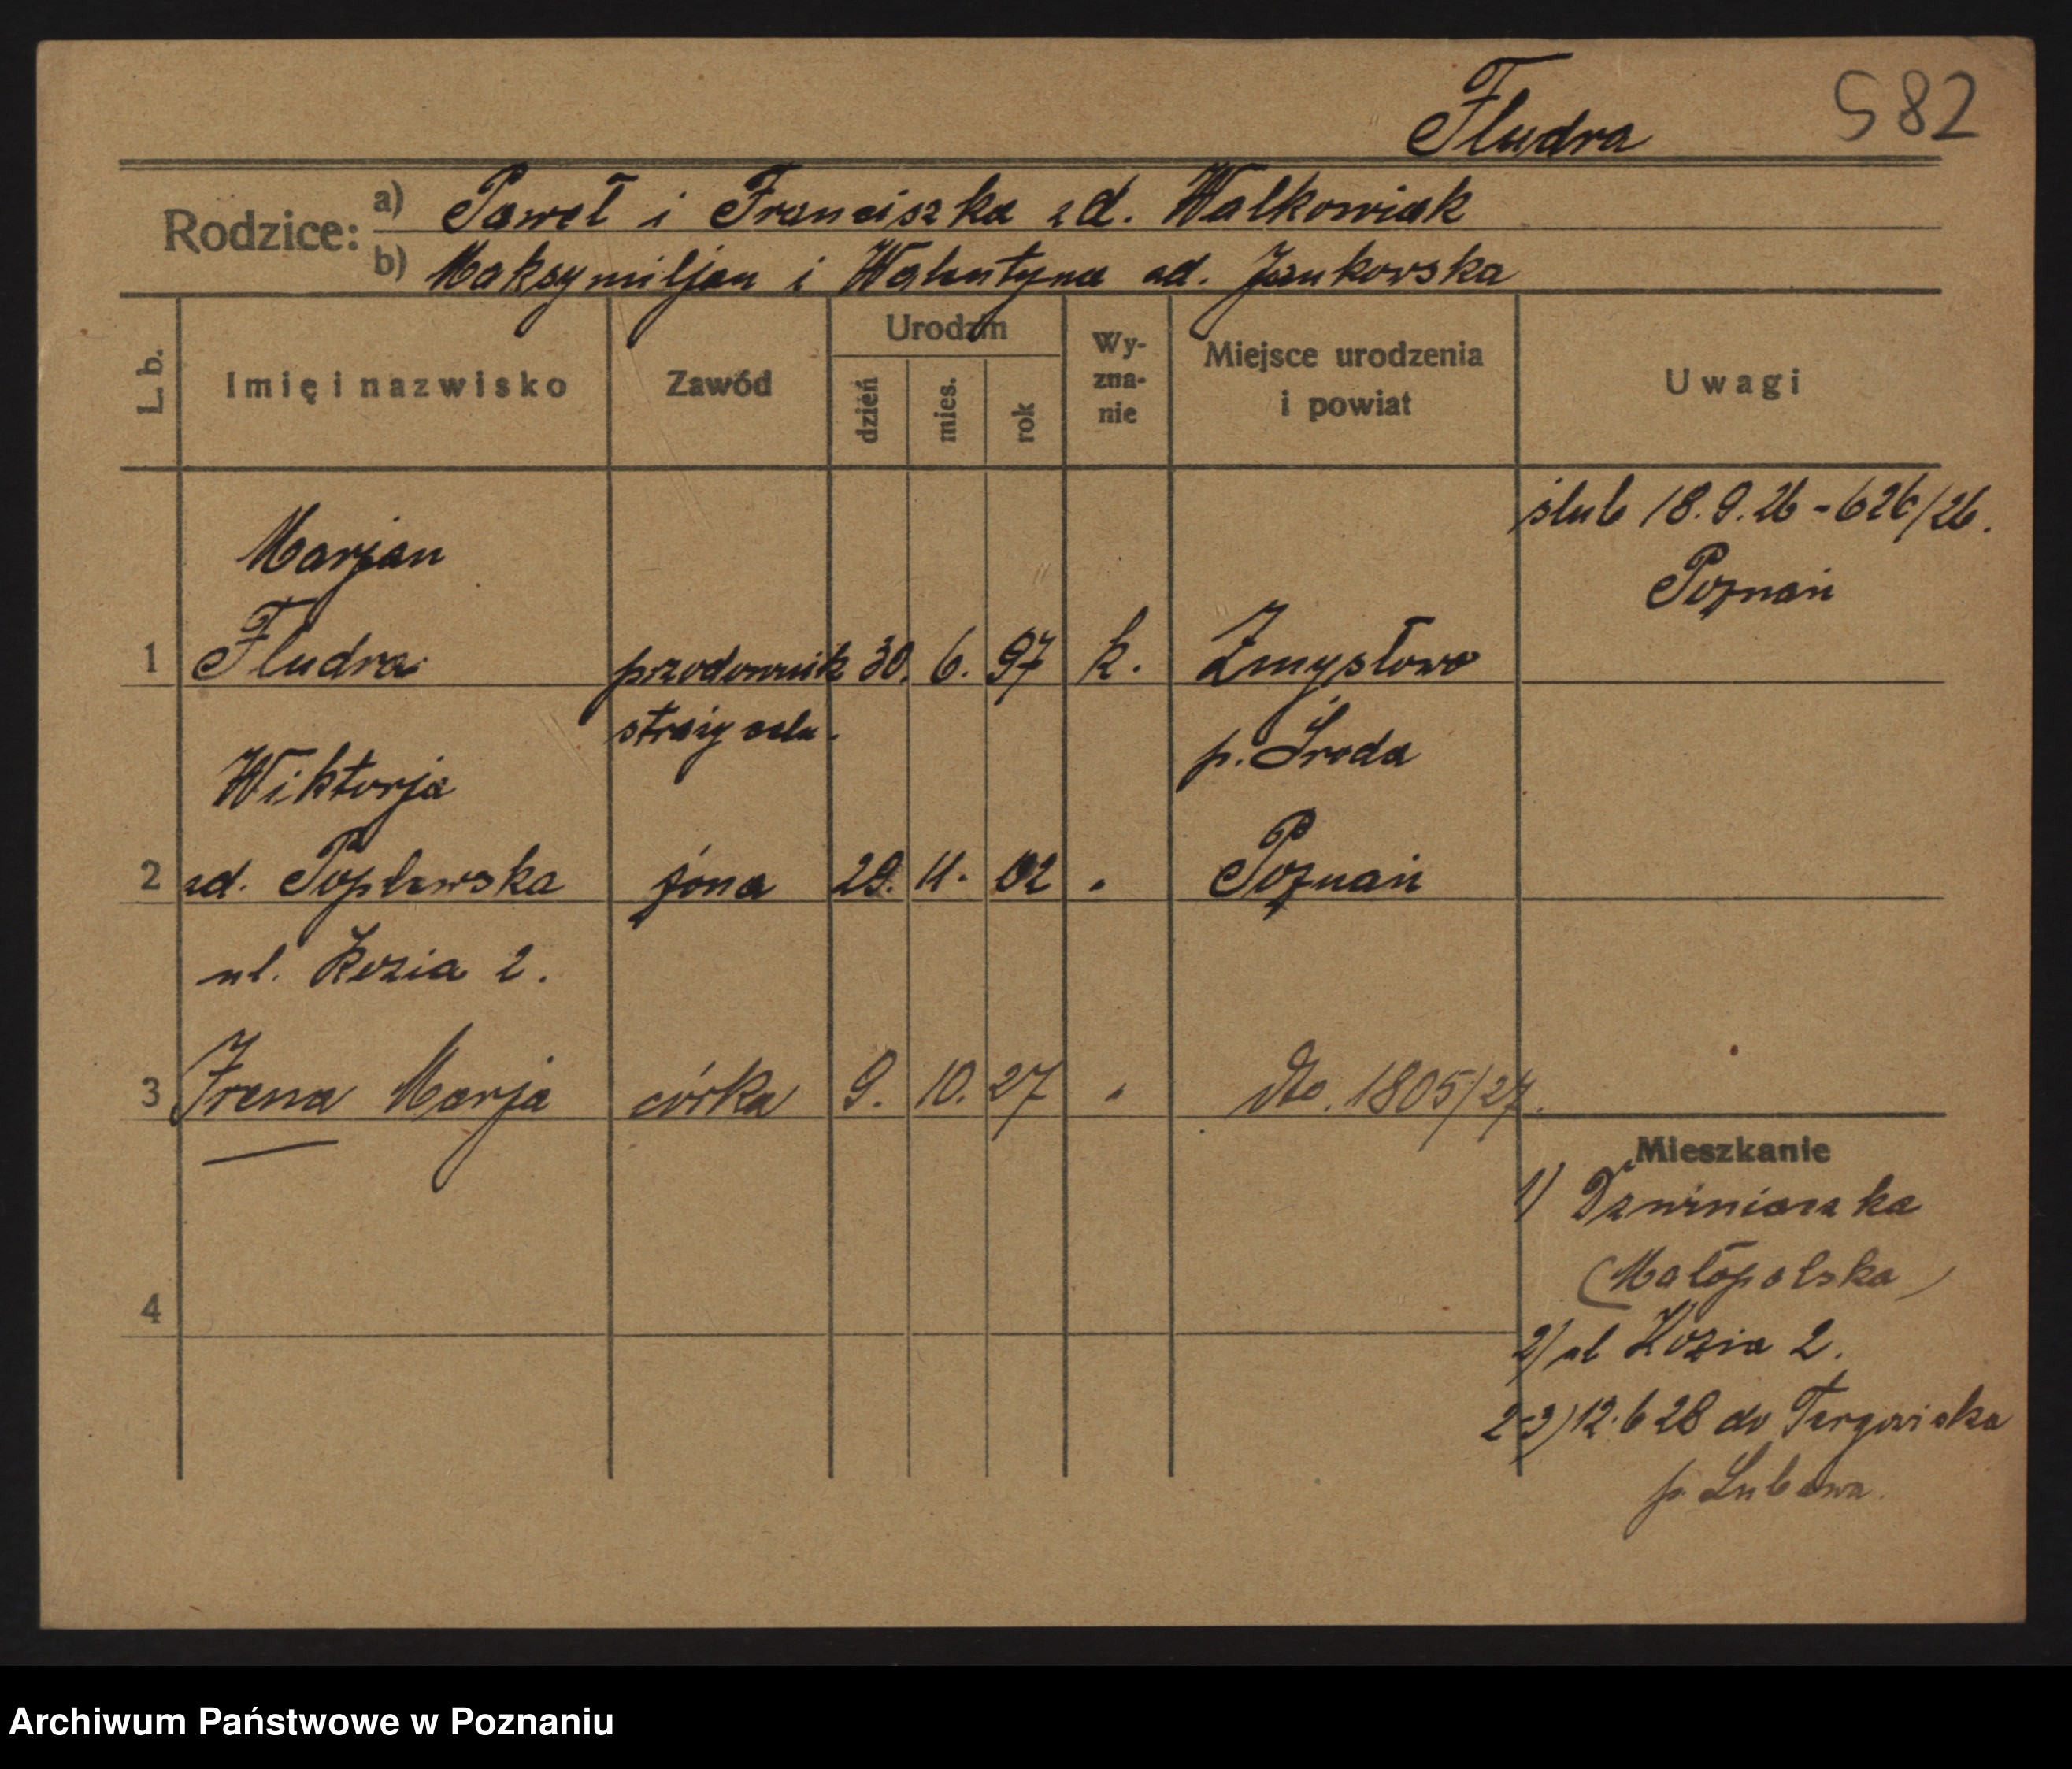 Fludra 582
Rodzice: a) Paweł i Franciszka zd. Walkowiak
b) Maksymiljan i Walentyna zd. Jankowska
L. b. Imię i nazwisko Zawód Urodzin dzień mies. rok Wy-zna-nie Miejsce urodzenia i powiat Uwagi
ślub 18.9.26 - 626/26.
Poznań
Marjan
1 Fludra przodownik 30. 6. 97 k. Zmysłowo
straży celn. p. Środa
Wiktorja
2 zd. Poplewska żona 29. 11. 02 " Poznań
ul. Kozia 2.
3 Irena Marja córka 9. 10. 27 " dto. 1805/27.
Mieszkanie
1) Dzwiniaczka
(Małopolska)
4
2) ul Kozia 2.
2-3) 12.6 28 do Targowiska
p. Lubawa.
Archiwum Państwowe w Poznaniu